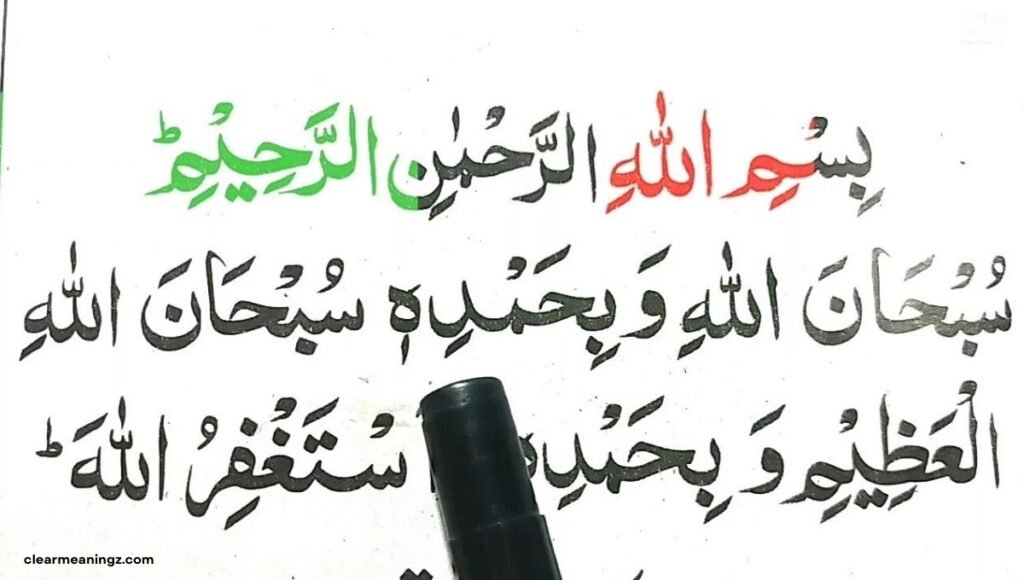 بِسْمِ اللهِ الرَّحْمٰنِ الرَّحِيْمِ ؕ
سُبْحَانَ اللهِ وَ بِحَمْدِهٖ سُبْحَانَ اللهِ
الْعَظِيْمِ وَ بِحَمْدِهٖ اَسْتَغْفِرُ اللهَ ؕ
clearmeaningz.com